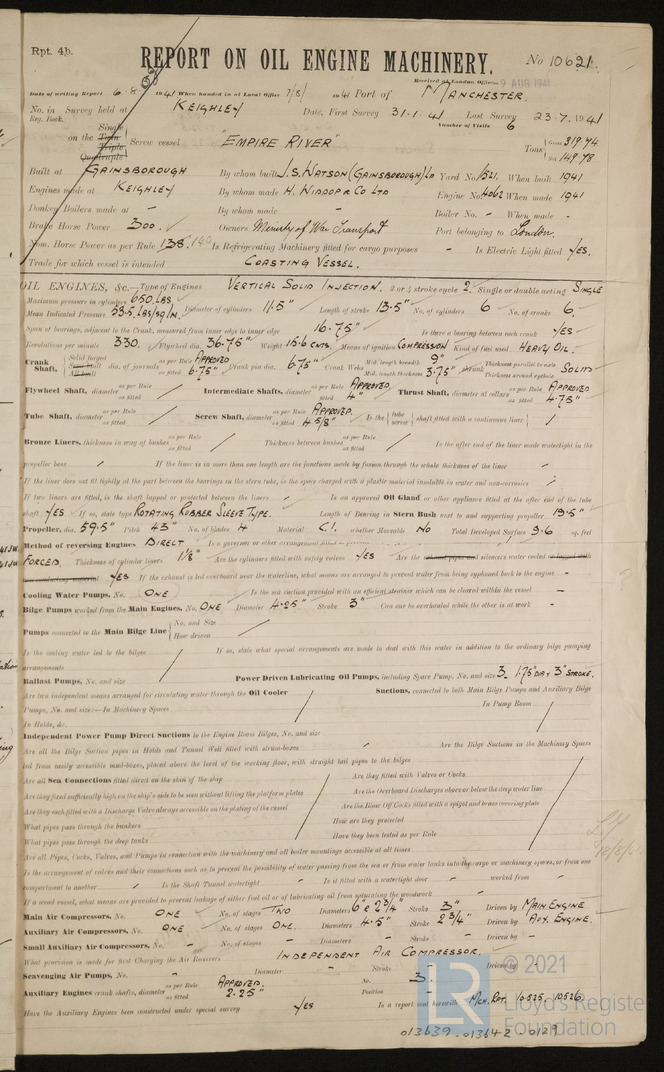 Rpt. 4b.
REPORT ON OIL ENGINE MACHINERY.
No 10621.
Received at London Office 9 AUG 1941
Date of writing Report 6.8.1941 When handed in at Local Office 7/8/1941 Port of MANCHESTER.
No. in Survey held at KEIGHLEY Date, First Survey 31.1.41 Last Survey 23.7.1941
Reg. Book. Number of Visits 6
on the Single Twin Triple Quadruple Screw vessel "EMPIRE RIVER" Tons Gross 319.74 Net 149.78
Built at GAINSBOROUGH By whom built J.S. WATSON (GAINSBOROUGH) Ld Yard No. 1521. When built 1941
Engines made at KEIGHLEY By whom made H. WIDDOP & CO LTD Engine No. 4062 When made 1941
Donkey Boilers made at - By whom made - Boiler No. - When made -
Brake Horse Power 300. Owners Ministry of War Transport Port belonging to London.
Nom. Horse Power as per Rule 138. Is Refrigerating Machinery fitted for cargo purposes - Is Electric Light fitted YES.
Trade for which vessel is intended COASTING VESSEL.
OIL ENGINES, &c.—Type of Engines VERTICAL SOLID INJECTION. 2 or 4 stroke cycle 2 Single or double acting SINGLE
Maximum pressure in cylinders 650 LBS Diameter of cylinders 11.5" Length of stroke 13.5" No. of cylinders 6 No. of cranks 6.
Mean Indicated Pressure 53.5 LBS/SQ/IN.
Span of bearings, adjacent to the Crank, measured from inner edge to inner edge 16.75" Is there a bearing between each crank YES
Revolutions per minute 330. Flywheel dia. 36.75" Weight 15.6 CWTS. Means of ignition COMPRESSION Kind of fuel used HEAVY OIL.
Crank Shaft, Solid forged dia. of journals as per Rule APPROVED as fitted 6.75" Crank pin dia. 6.75" Crank Webs Mid. length breadth 9" Mid. length thickness 3.75" shrunk Thickness parallel to axis SOLID Thickness around eyehole
Flywheel Shaft, diameter as per Rule as fitted Intermediate Shafts, diameter as per Rule APPROVED as fitted 4" Thrust Shaft, diameter at collars as per Rule APPROVED as fitted 4.75"
Tube Shaft, diameter as per Rule as fitted Screw Shaft, diameter as per Rule APPROVED. as fitted 4 5/8" Is the tube screw shaft fitted with a continuous liner
Bronze Liners, thickness in way of bushes as per Rule as fitted Thickness between bushes as per Rule as fitted Is the after end of the liner made watertight in the
propeller boss If the liner is in more than one length are the junctions made by fusion through the whole thickness of the liner
If the liner does not fit tightly at the part between the bearings in the stern tube, is the space charged with a plastic material insoluble in water and non-corrosive
If two liners are fitted, is the shaft lapped or protected between the liners Is an approved Oil Gland or other appliance fitted at the after end of the tube
shaft YES If so, state type ROTATING RUBBER SLEEVE TYPE. Length of Bearing in Stern Bush next to and supporting propeller 19.5"
Propeller, dia. 59.5" Pitch 43" No. of blades 4 Material C.I. whether Moveable NO Total Developed Surface 9.6 sq. feet
Method of reversing Engines DIRECT Is a governor or other arrangement fitted
FORCED Thickness of cylinder liners 1 1/8" Are the cylinders fitted with safety valves YES Are the exhaust pipes and silencers water cooled or lagged with
YES If the exhaust is led overboard near the waterline, what means are arranged to prevent water from being syphoned back to the engine -
Cooling Water Pumps, No. ONE Is the sea suction provided with an efficient strainer which can be cleared within the vessel -
Bilge Pumps worked from the Main Engines, No. ONE Diameter 4.25" Stroke 3" Can one be overhauled while the other is at work -
Pumps connected to the Main Bilge Line No. and Size How driven
Is the cooling water led to the bilges If so, state what special arrangements are made to deal with this water in addition to the ordinary bilge pumping
arrangements
Ballast Pumps, No. and size Power Driven Lubricating Oil Pumps, including Spare Pump, No. and size 3. 1.75"DIA x 3" STROKE.
Are two independent means arranged for circulating water through the Oil Cooler Suctions, connected to both Main Bilge Pumps and Auxiliary Bilge
Pumps, No. and size:—In Machinery Spaces In Pump Room
In Holds, &c.
Independent Power Pump Direct Suctions to the Engine Room Bilges, No. and size
Are all the Bilge Suction pipes in Holds and Tunnel Well fitted with strum-boxes Are the Bilge Suctions in the Machinery Spaces
led from easily accessible mud-boxes, placed above the level of the working floor, with straight tail pipes to the bilges
Are all Sea Connections fitted direct on the skin of the ship Are they fitted with Valves or Cocks
Are they fixed sufficiently high on the ship's side to be seen without lifting the platform plates Are the Overboard Discharges above or below the deep water line
Are they each fitted with a Discharge Valve always accessible on the plating of the vessel Are the Blow Off Cocks fitted with a spigot and brass covering plate
What pipes pass through the bunkers How are they protected
What pipes pass through the deep tanks Have they been tested as per Rule
Are all Pipes, Cocks, Valves, and Pumps in connection with the machinery and all boiler mountings accessible at all times
Is the arrangement of valves and their connections such as to prevent the possibility of water passing from the sea or from water tanks into the cargo or machinery spaces, or from one
compartment to another Is the Shaft Tunnel watertight Is it fitted with a watertight door worked from
If a wood vessel, what means are provided to prevent leakage of either fuel oil or of lubricating oil from saturating the woodwork
Main Air Compressors, No. ONE No. of stages TWO Diameters 6" & 2 3/4" Stroke 3" Driven by MAIN ENGINE
Auxiliary Air Compressors, No. ONE No. of stages ONE. Diameters 4.5" Stroke 2 3/4" Driven by AUX. ENGINE.
Small Auxiliary Air Compressors, No. - No. of stages - Diameters - Stroke - Driven by -
What provision is made for first Charging the Air Receivers INDEPENDENT AIR COMPRESSOR.
Scavenging Air Pumps, No. - Diameter - Stroke - Driven by -
Auxiliary Engines crank shafts, diameter as per Rule APPROVED. as fitted 2.25" No. 3. Position -
Have the Auxiliary Engines been constructed under special survey YES Is a report sent herewith MCH. RPT 10525. 10526.
© 2021
LR Lloyd's Register Foundation
013639-013642-0129